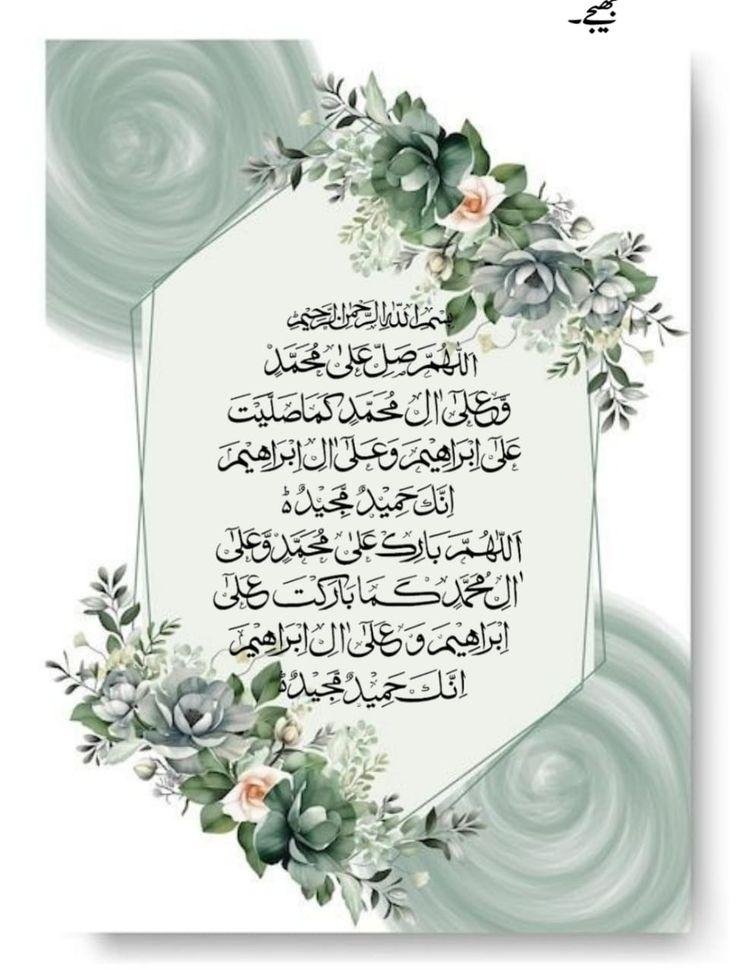 بھیجے۔
بِسْمِ اللهِ الرَّحْمٰنِ الرَّحِيْمِ
اَللّٰهُمَّ صَلِّ عَلٰى مُحَمَّدٍ
وَّعَلٰٓى اٰلِ مُحَمَّدٍ كَمَا صَلَّيْتَ
عَلٰٓى اِبْرَاهِيْمَ وَعَلٰٓى اٰلِ اِبْرَاهِيْمَ
اِنَّكَ حَمِيْدٌ مَّجِيْدٌ ؕ
اَللّٰهُمَّ بَارِكْ عَلٰى مُحَمَّدٍ وَّعَلٰٓى
اٰلِ مُحَمَّدٍ كَمَا بَارَكْتَ عَلٰٓى
اِبْرَاهِيْمَ وَعَلٰٓى اٰلِ اِبْرَاهِيْمَ
اِنَّكَ حَمِيْدٌ مَّجِيْدٌ ؕ